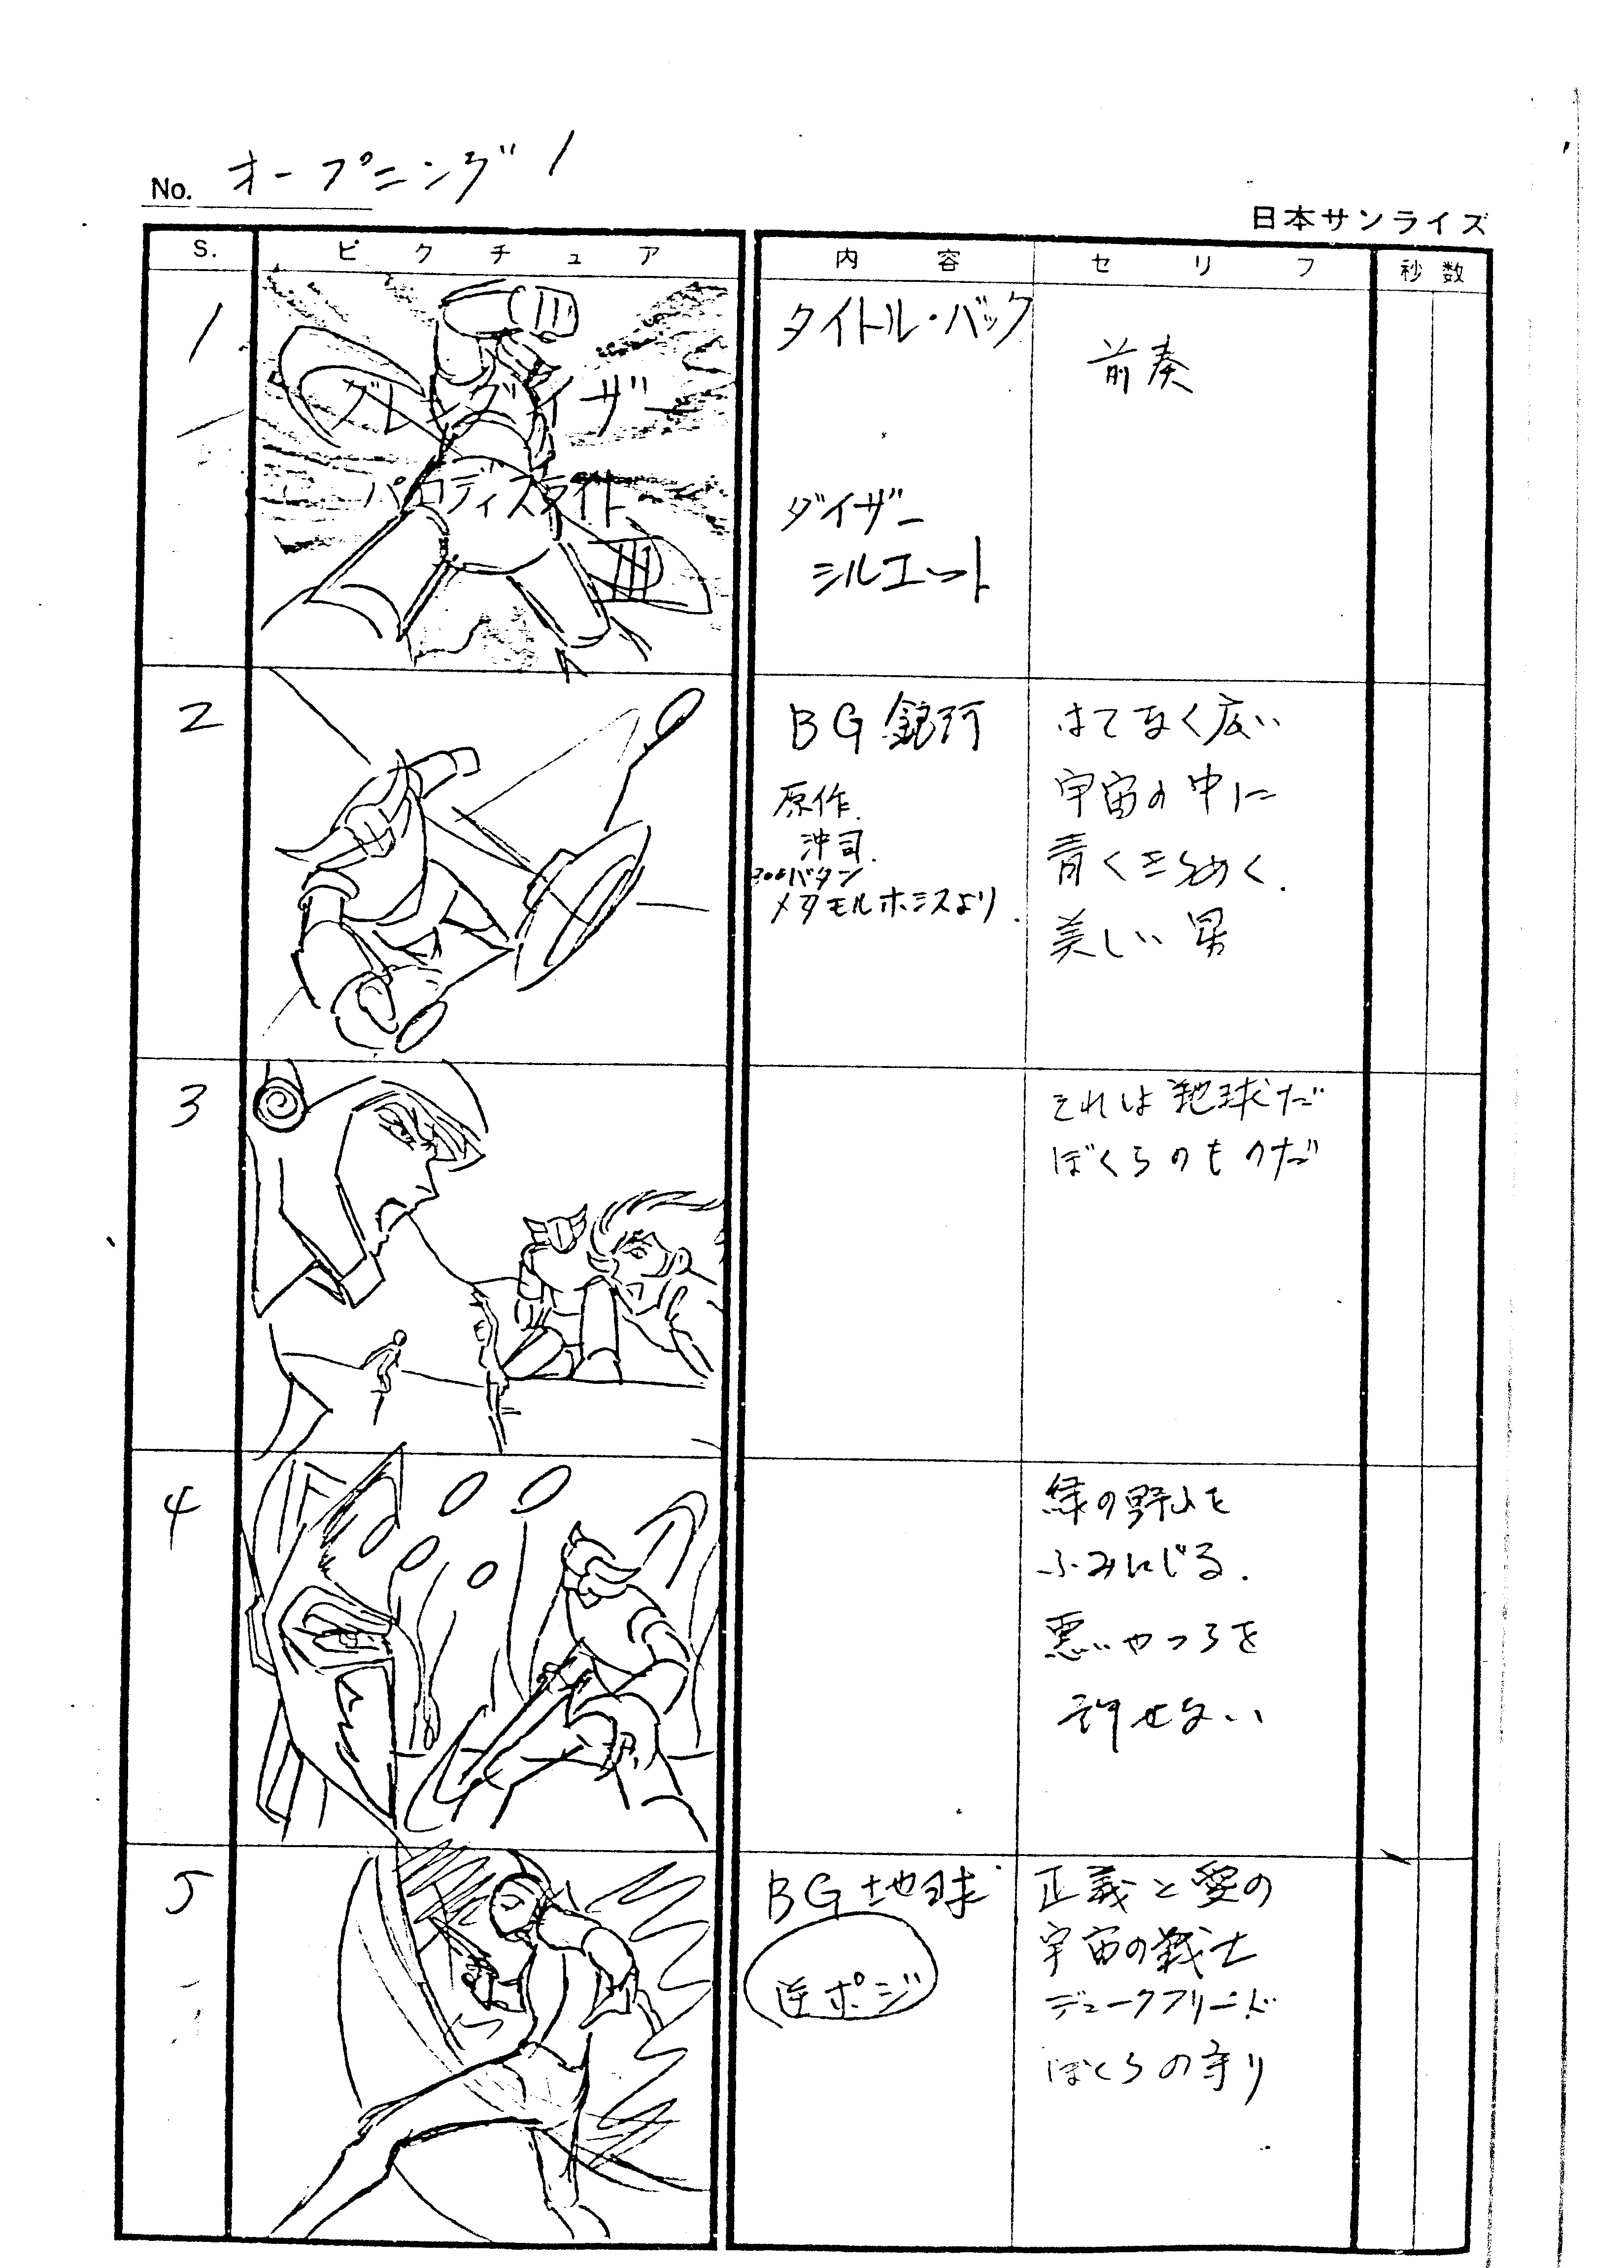 No. オープニング 1
日本サンライズ
S. ピクチュア 内容 セリフ 秒数
1
グレンダイザー
パロディスライド
タイトル・バック
ダイザー
シルエット
前奏
2
BG 銀河
原作.
沖司.
300バタン
メタモルホミスより.
はてなく広い
宇宙の中に
青くきらめく.
美しい男
3
それは地球だ
ぼくらのものだ
4
緑の野山を
ふみにじる.
悪いやつらを
許せない
5
BG 地球
逆ポジ
正義と愛の
宇宙の戦士
デュークフリード
ぼくらの守り